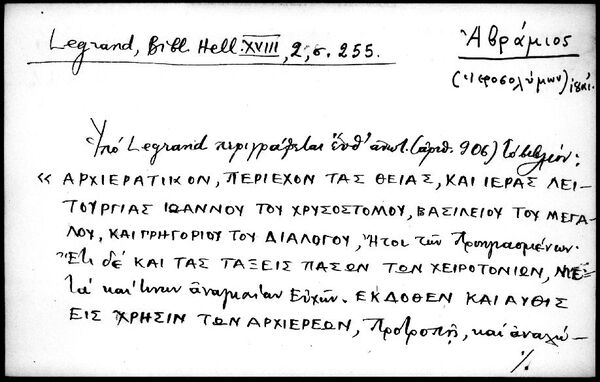 Legrand, Bibl. Hell. XVIII, 2, σ. 255.
Ἀβράμιος
(Ἱεροσολύμων)
Ὑπό Legrand περιγράφεται ἐνθ' ἀνωτ. (ἀριθ. 906) τό βιβλίον:
« ΑΡΧΙΕΡΑΤΙΚΟΝ, ΠΕΡΙΕΧΟΝ ΤΑΣ ΘΕΙΑΣ, ΚΑΙ ΙΕΡΑΣ ΛΕΙ-
ΤΟΥΡΓΙΑΣ ΙΩΑΝΝΟΥ ΤΟΥ ΧΡΥΣΟΣΤΟΜΟΥ, ΒΑΣΙΛΕΙΟΥ ΤΟΥ ΜΕΓΑ-
ΛΟΥ, ΚΑΙ ΓΡΗΓΟΡΙΟΥ ΤΟΥ ΔΙΑΛΟΓΟΥ, Ἤτοι τῶν Προηγιασμένων.
Ἔτι δέ ΚΑΙ ΤΑΣ ΤΑΞΕΙΣ ΠΑΣΩΝ ΤΩΝ ΧΕΙΡΟΤΟΝΙΩΝ, ΜΕ-
τά καί τινων ἀναγκαίων Εὐχῶν. ΕΚΔΟΘΕΝ ΚΑΙ ΑΥΘΙΣ
ΕΙΣ ΧΡΗΣΙΝ ΤΩΝ ΑΡΧΙΕΡΕΩΝ, Προτροπῇ, καί ἀναλώ-
./.